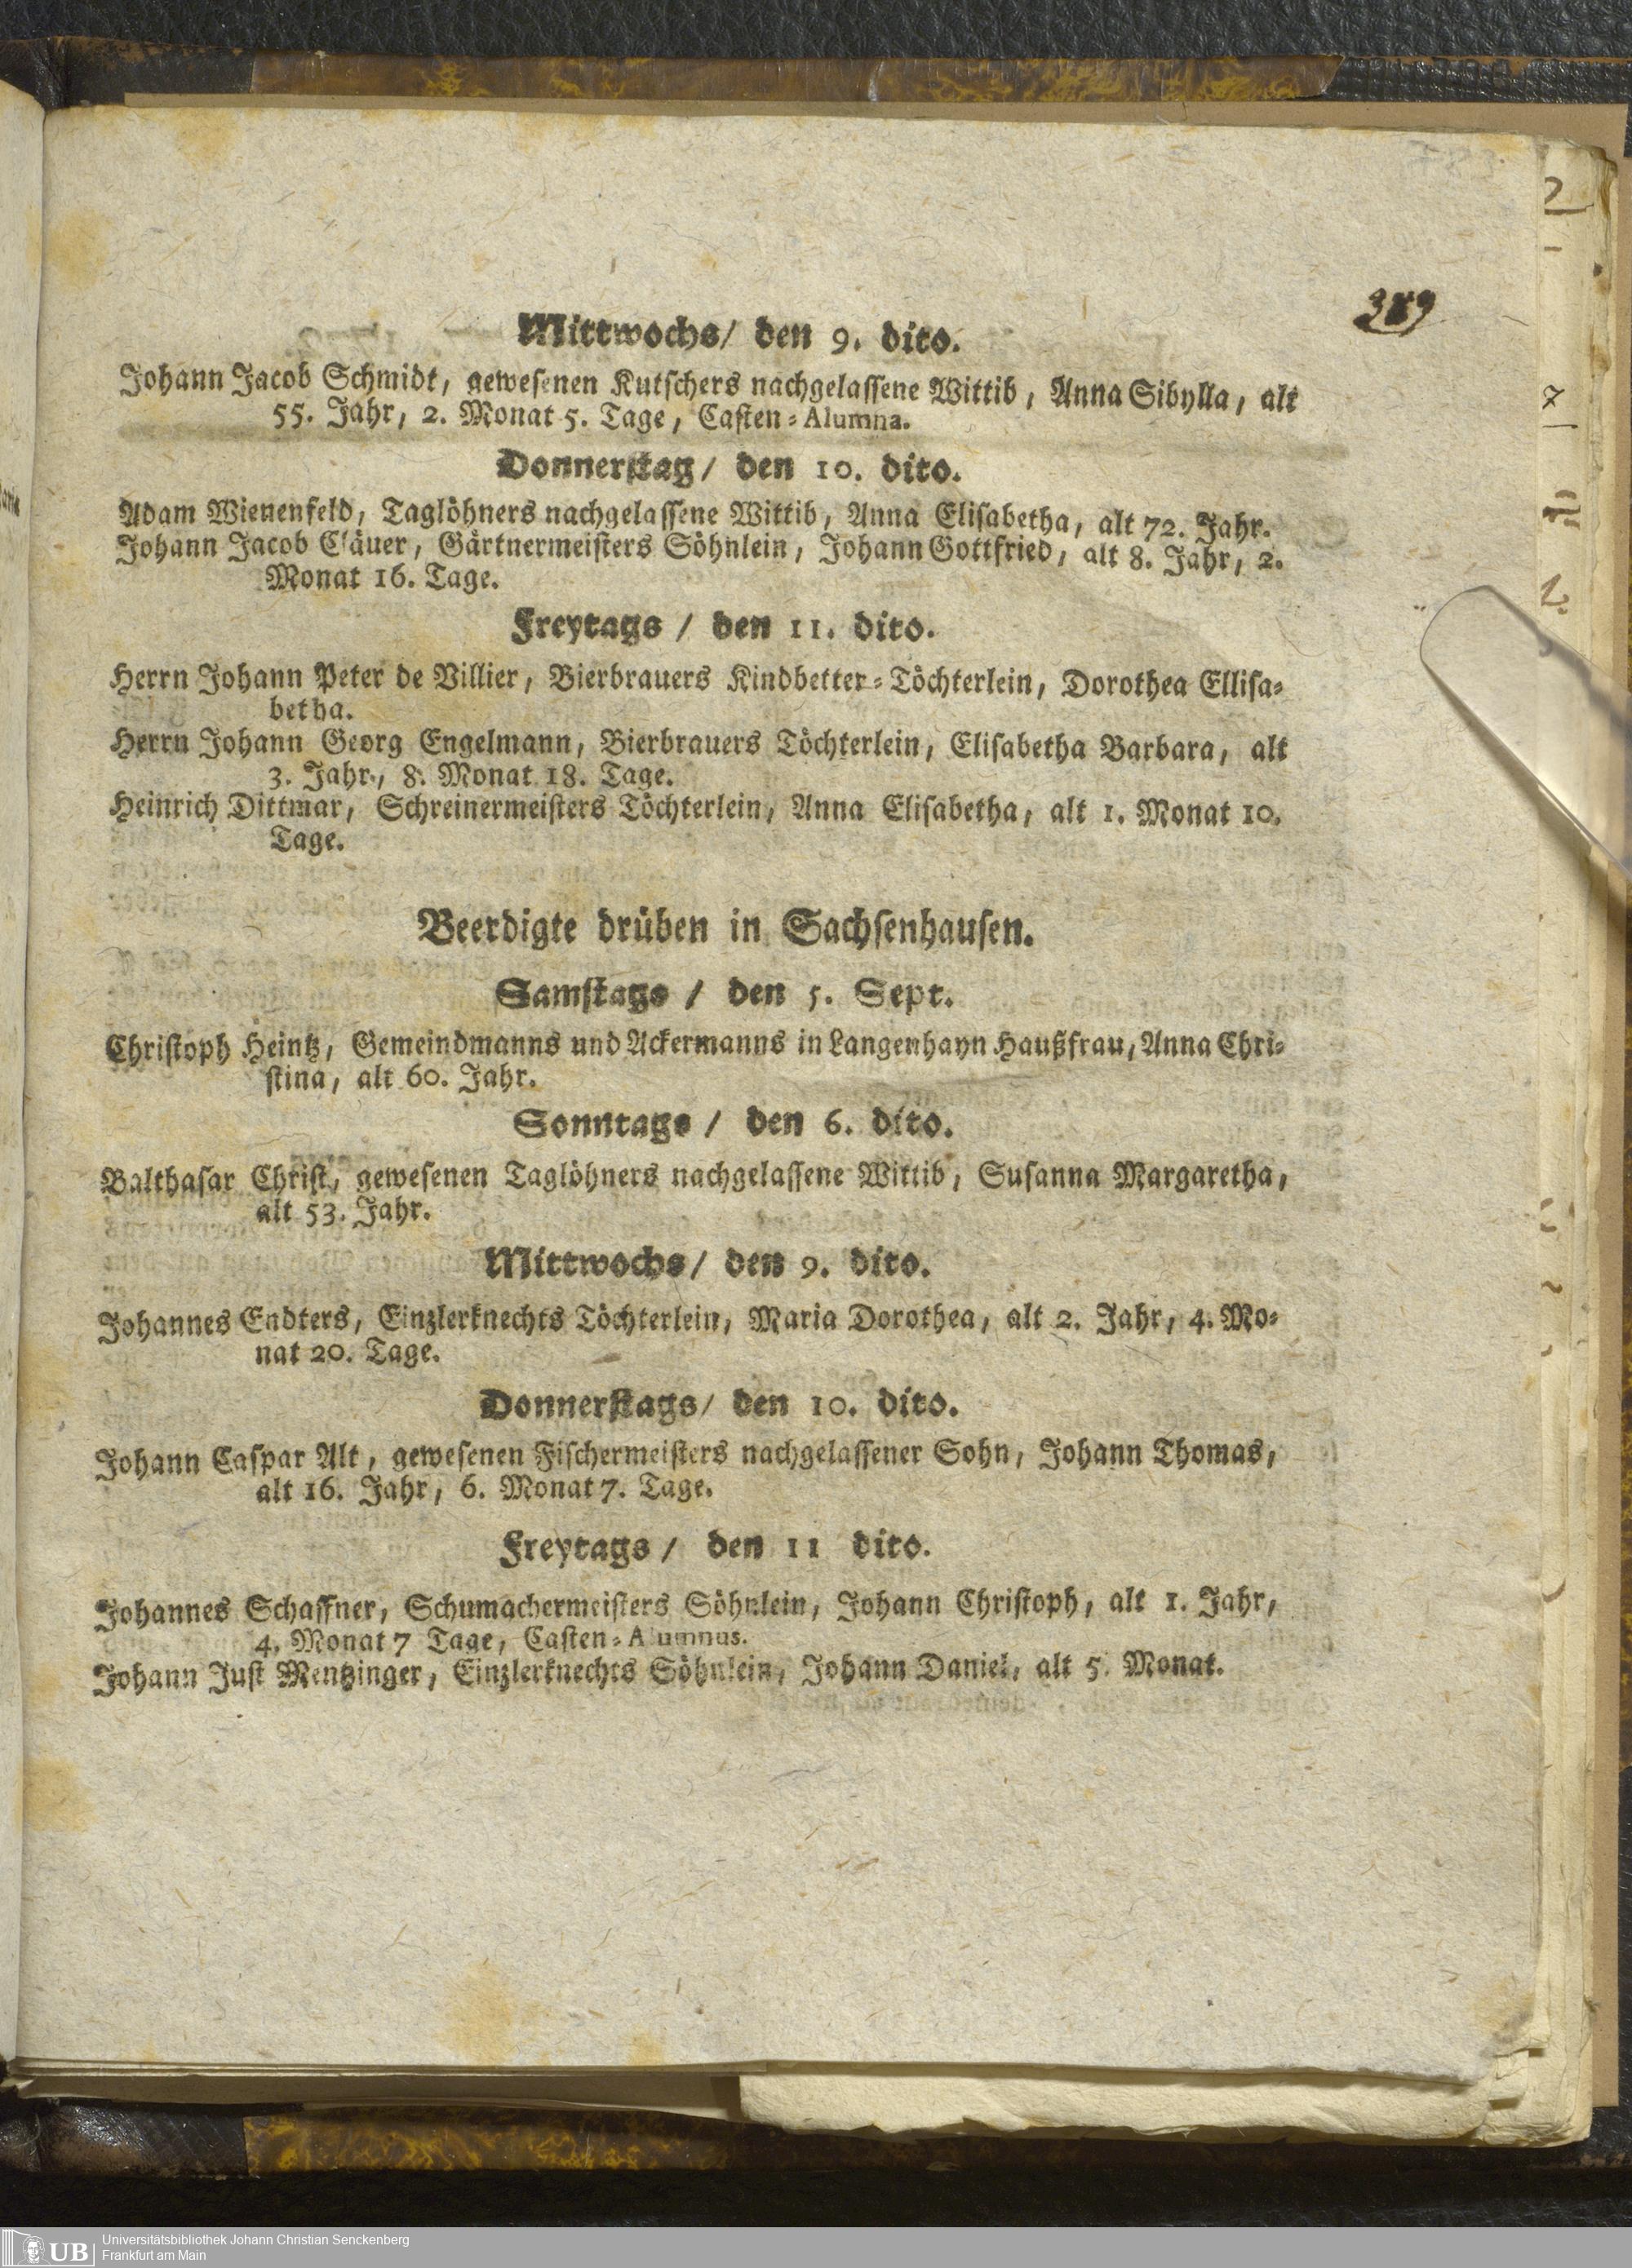 Mittwochs/ den 9. dito.
Johann Jacob Schmidt, gewesenen Kutschers nachgelassene Wittib, Anna Sibylla, alt
55. Jahr, 2. Monat 5. Tage, Casten-Alumna.
Donnerstag/ den 10. dito.
Adam Wienenfeld, Taglöhners nachgelassene Wittib, Anna Elisabetha, alt 72. Jahr.
Johann Jacob Cläuer, Gärtnermeisters Söhnlein, Johann Gottfried, alt 8. Jahr, 2.
Monat 16. Tage.
Freytags / den 11. dito.
Herrn Johann Peter de Villier, Bierbrauers Kindbetter-Töchterlein, Dorothea Ellisa-
betha.
Herrn Johann Georg Engelmann, Bierbrauers Töchterlein, Elisabetha Barbara, alt
3. Jahr, 8. Monat 18. Tage.
Heinrich Dittmar, Schreinermeisters Töchterlein, Anna Elisabetha, alt 1. Monat 10.
Tage.
Beerdigte drüben in Sachsenhausen.
Samstags / den 5. Sept.
Christoph Heintz, Gemeindmanns und Ackermanns in Langenhayn Haußfrau, Anna Chri-
stina, alt 60. Jahr.
Sonntags / den 6. dito.
Balthasar Christ, gewesenen Taglöhners nachgelassene Wittib, Susanna Margaretha,
alt 53. Jahr.
Mittwochs/ den 9. dito.
Johannes Endters, Einzlerknechts Töchterlein, Maria Dorothea, alt 2. Jahr, 4. Mo-
nat 20. Tage.
Donnerstags/ den 10. dito.
Johann Caspar Alt, gewesenen Fischermeisters nachgelassener Sohn, Johann Thomas,
alt 16. Jahr, 6. Monat 7. Tage.
Freytags / den 11 dito.
Johannes Schaffner, Schumachermeisters Söhnlein, Johann Christoph, alt 1. Jahr,
4. Monat 7 Tage, Casten-Alumnus.
Johann Just Mentzinger, Einzlerknechts Söhnlein, Johann Daniel, alt 5. Monat.
UB
Universitätsbibliothek Johann Christian Senckenberg
Frankfurt am Main